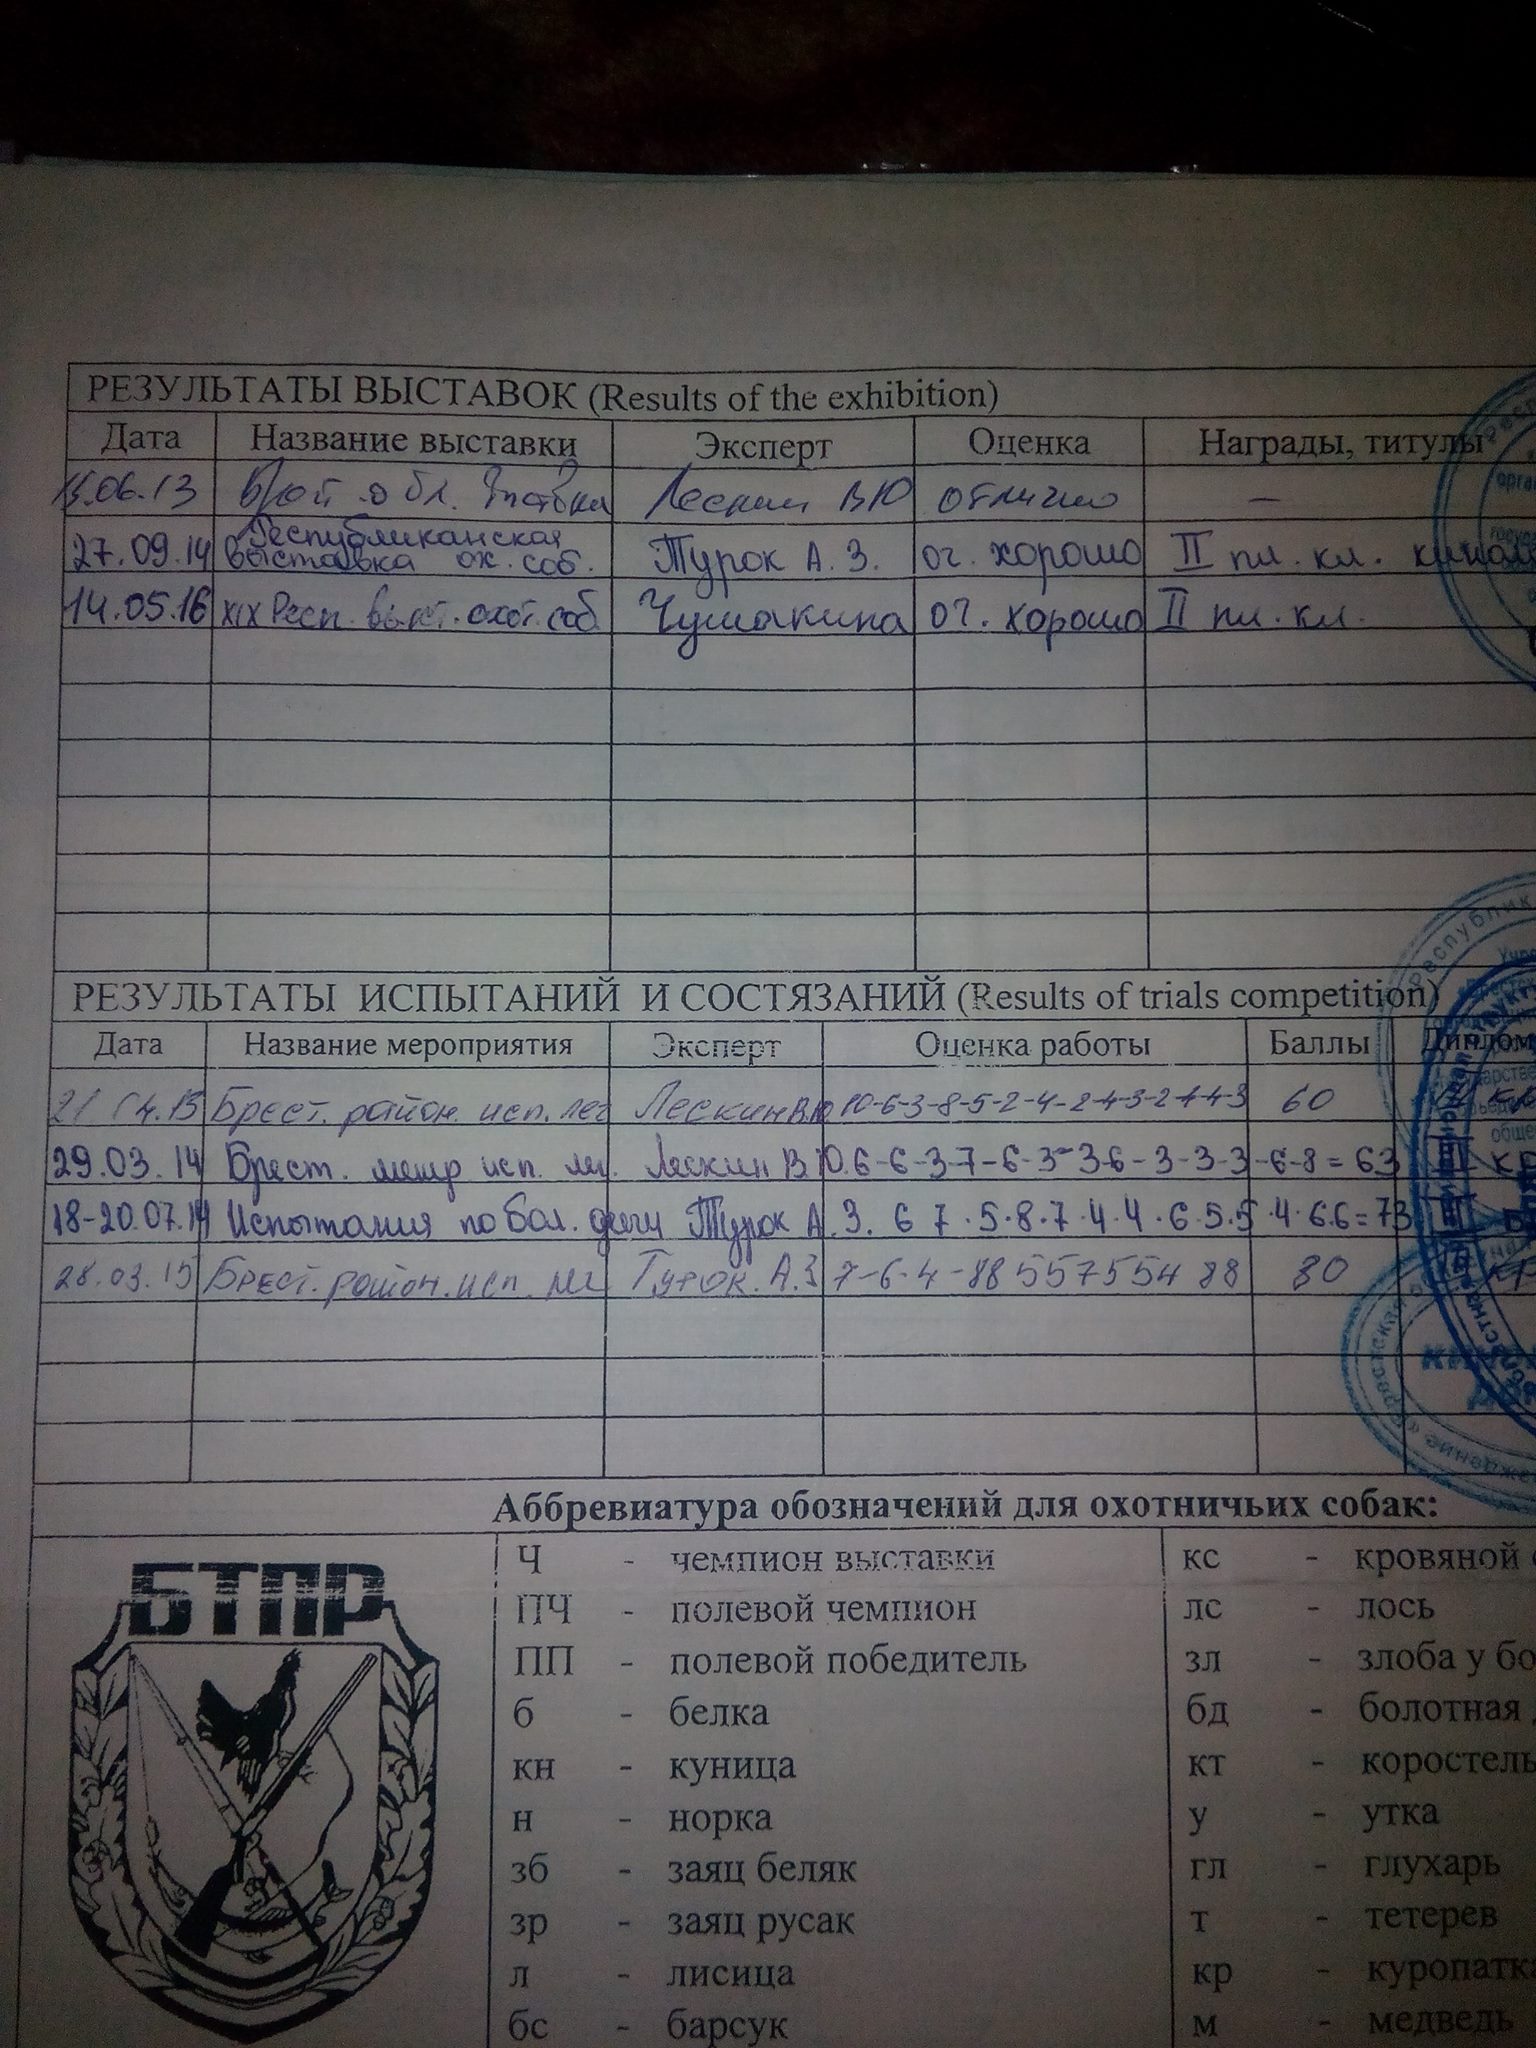 РЕЗУЛЬТАТЫ ВЫСТАВОК (Results of the exhibition)
Дата Название выставки Эксперт Оценка Награды, титулы
15.06.13 обл. Лескин В Ю отлично —
27.09.14 Республиканская выставка ох. соб. Турок А. З. оч. хорошо II пл. кл.
14.05.16 XIX Респ. выст. охот. соб. Чумакина оч. хорошо II пл. кл.
РЕЗУЛЬТАТЫ ИСПЫТАНИЙ И СОСТЯЗАНИЙ (Results of trials competition)
Дата Название мероприятия Эксперт Оценка работы Баллы Диплом
Брест. район. исп. лег Лескин В.Ю. 10-6-3-8-5-2-4-2-4-3-2-4-4-3 60
29.03.14 Брест. исп. Лескин В Ю. 6-6-3-7-6-3-3-6-3-3-3-6-8=63 III
18-20.07.14 Испытания по бол. дичи Турок А. З. 6 7.5.8.7.4.4.6.5.5.4.6.6=73 III
28.03.15 Брест. район. исп. Турок. А.З 7-6-4-8 8 5 5 7 5 5 4 8 8 80
Аббревиатура обозначений для охотничьих собак:
БТПР
Ч - чемпион выставки кс - кровяной
ПЧ - полевой чемпион лс - лось
ПП - полевой победитель зл - злоба у
б - белка бд - болотная
кн - куница кт - коростель
н - норка у - утка
зб - заяц беляк гл - глухарь
зр - заяц русак т - тетерев
л - лисица кр - куропатка
бс - барсук м - медведь